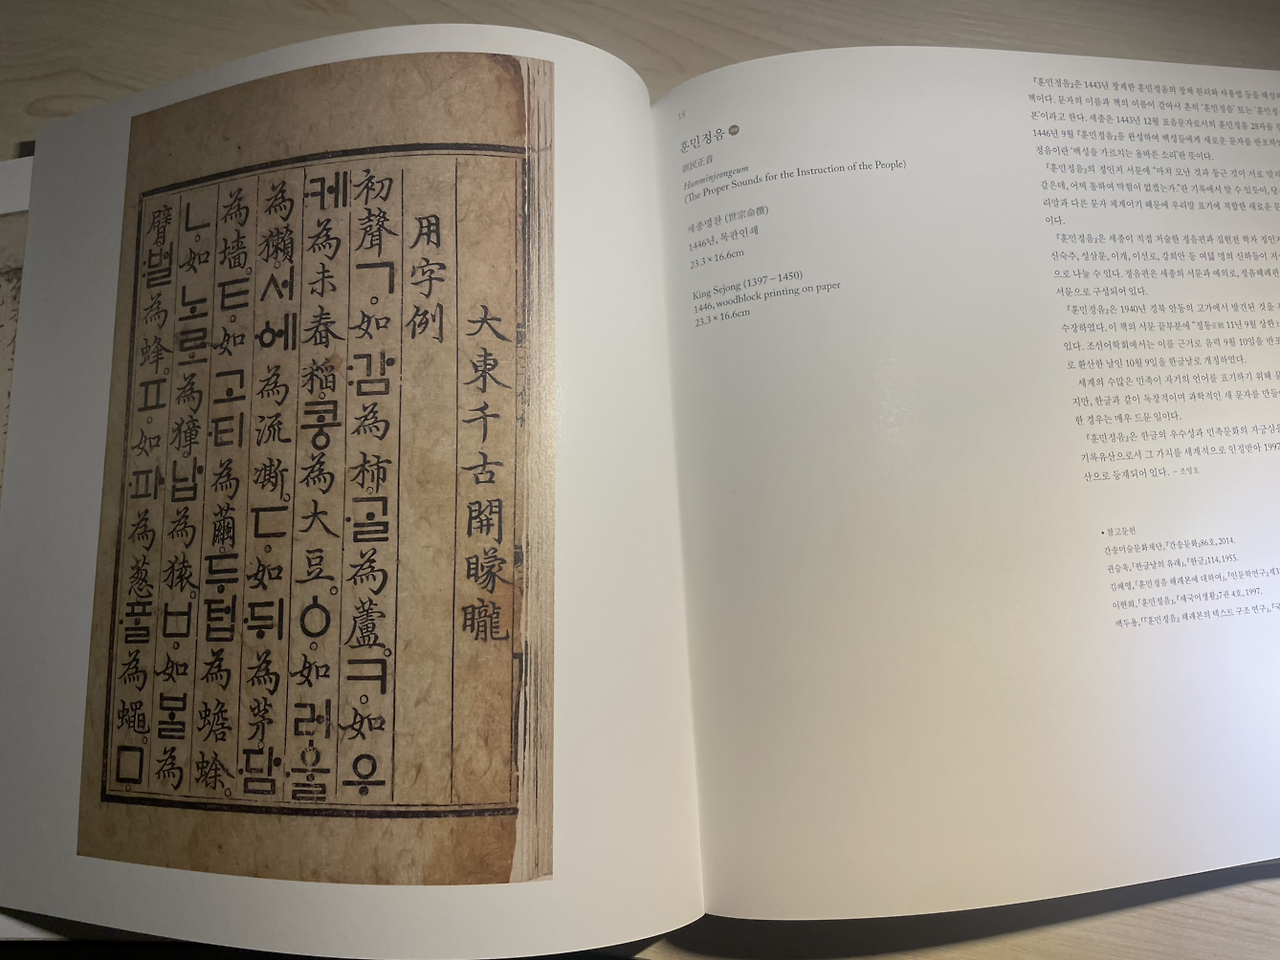 大東千古開矇矓
用字例
初聲ㄱ。如:감為柿。·ᄀᆞᆯ為蘆。ㅋ。如우
·케為未舂稻。콩為大豆。ㆁ。如러·ᅌᅮᆯ
為獺。서·ᅌᅦ為流凘。ㄷ。如·뒤為茅。·담
為墻。ㅌ。如고·티為繭。두텁為蟾蜍。
ㄴ。如노로為獐。납為猿。ㅂ。如ᄇᆞᆯ為
臂。:벌為蜂。ㅍ。如·파為葱。·ᄑᆞᆯ為蠅。ㅁ。
18
훈민정음
訓民正音
Hunminjeongeum
(The Proper Sounds for the Instruction of the People)
세종명찬 (世宗命撰)
1446년, 목판인쇄
23.3×16.6cm
King Sejong (1397–1450)
1446, woodblock printing on paper
23.3×16.6cm
『훈민정음』은 1443년 창제한 훈민정음의 창제 원리와 사용법 등을 해설
책이다. 문자의 이름과 책의 이름이 같아서 흔히 '훈민정음' 또는 '훈민정
본'이라고 한다. 세종은 1443년 12월 표음문자로서의 훈민정음 28자를
1446년 9월 『훈민정음』을 완성하여 백성들에게 새로운 문자를 반포하
정음이란 '백성을 가르치는 올바른 소리'란 뜻이다.
『훈민정음』의 정인지 서문에 "마치 모난 것과 둥근 것이 서로 맞지
같은데, 어찌 통하여 막힘이 없겠는가."란 기록에서 알 수 있듯이,
리말과 다른 문자 체계이기 때문에 우리말 표기에 적합한 새로운 문
이다.
『훈민정음』은 세종이 직접 저술한 정음편과 집현전 학자 정인지
신숙주, 성삼문, 이개, 이선로, 강희안 등 여덟 명의 신하들이 저
으로 나눌 수 있다. 정음편은 세종의 서문과 예의로, 정음해례편
서문으로 구성되어 있다.
『훈민정음』은 1940년 경북 안동의 고가에서 발견된 것을
수장하였다. 이 책의 서문 끝부분에 "정통正統 11년 9월 상한
있다. 조선어학회에서는 이를 근거로 음력 9월 10일을 반포
로 환산한 날인 10월 9일을 한글날로 개정하였다.
세계의 수많은 민족이 자기의 언어를 표기하기 위해 문
지만, 한글과 같이 독창적이며 과학적인 새 문자를 만들
한 경우는 매우 드문 일이다.
『훈민정음』은 한글의 우수성과 민족문화의 자긍심을
기록유산으로서 그 가치를 세계적으로 인정받아 1997
산으로 등재되어 있다. – 조영호
• 참고문헌
간송미술문화재단, 『간송문화』86호, 2014.
권승욱, 「한글날의 유래」, 『한글』114, 1955.
김혜영, 「훈민정음 해례본에 대하여」, 『인문학연구』제3
이현희, 「훈민정음」, 『새국어생활』7권 4호, 1997.
백두용, 「『훈민정음』 해례본의 텍스트 구조 연구」, 『국